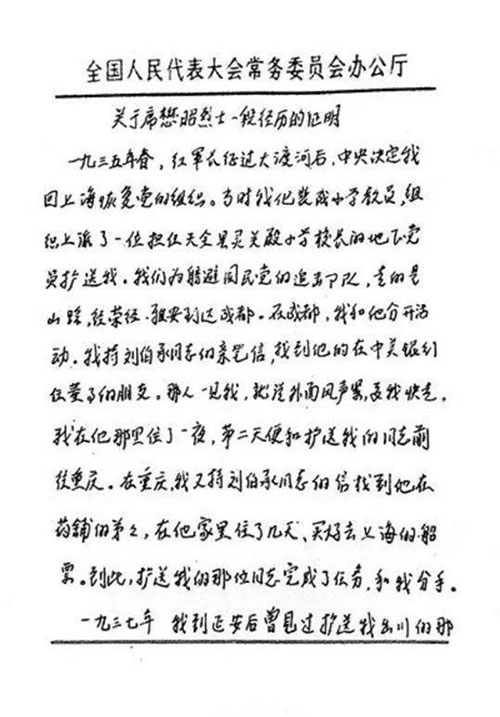 全国人民代表大会常务委员会办公厅
关于席懋昭烈士一段经历的证明
一九三五年春，红军长征过大渡河后，中央决定我
回上海恢复党的组织。当时我化装成小学教员，组
织上派了一位担任天全县灵关殿小学校长的地下党
员护送我。我们为躲避国民党的追击部队，走的是
山路，经荥经、雅安到达成都。在成都，我和他分开活
动。我持刘伯承同志的亲笔信，找到他的在中美银行
任董事的朋友。那人一见我，就说外面风声紧，要我快走。
我在他那里住了一夜，第二天便和护送我的同志前
往重庆。在重庆，我又持刘伯承同志的信找到他在
药铺的弟弟，在他家里住了几天，买好去上海的船
票。到此，护送我的那位同志完成了任务，和我分手。
一九三七年 我到延安后曾见过护送我出川的那